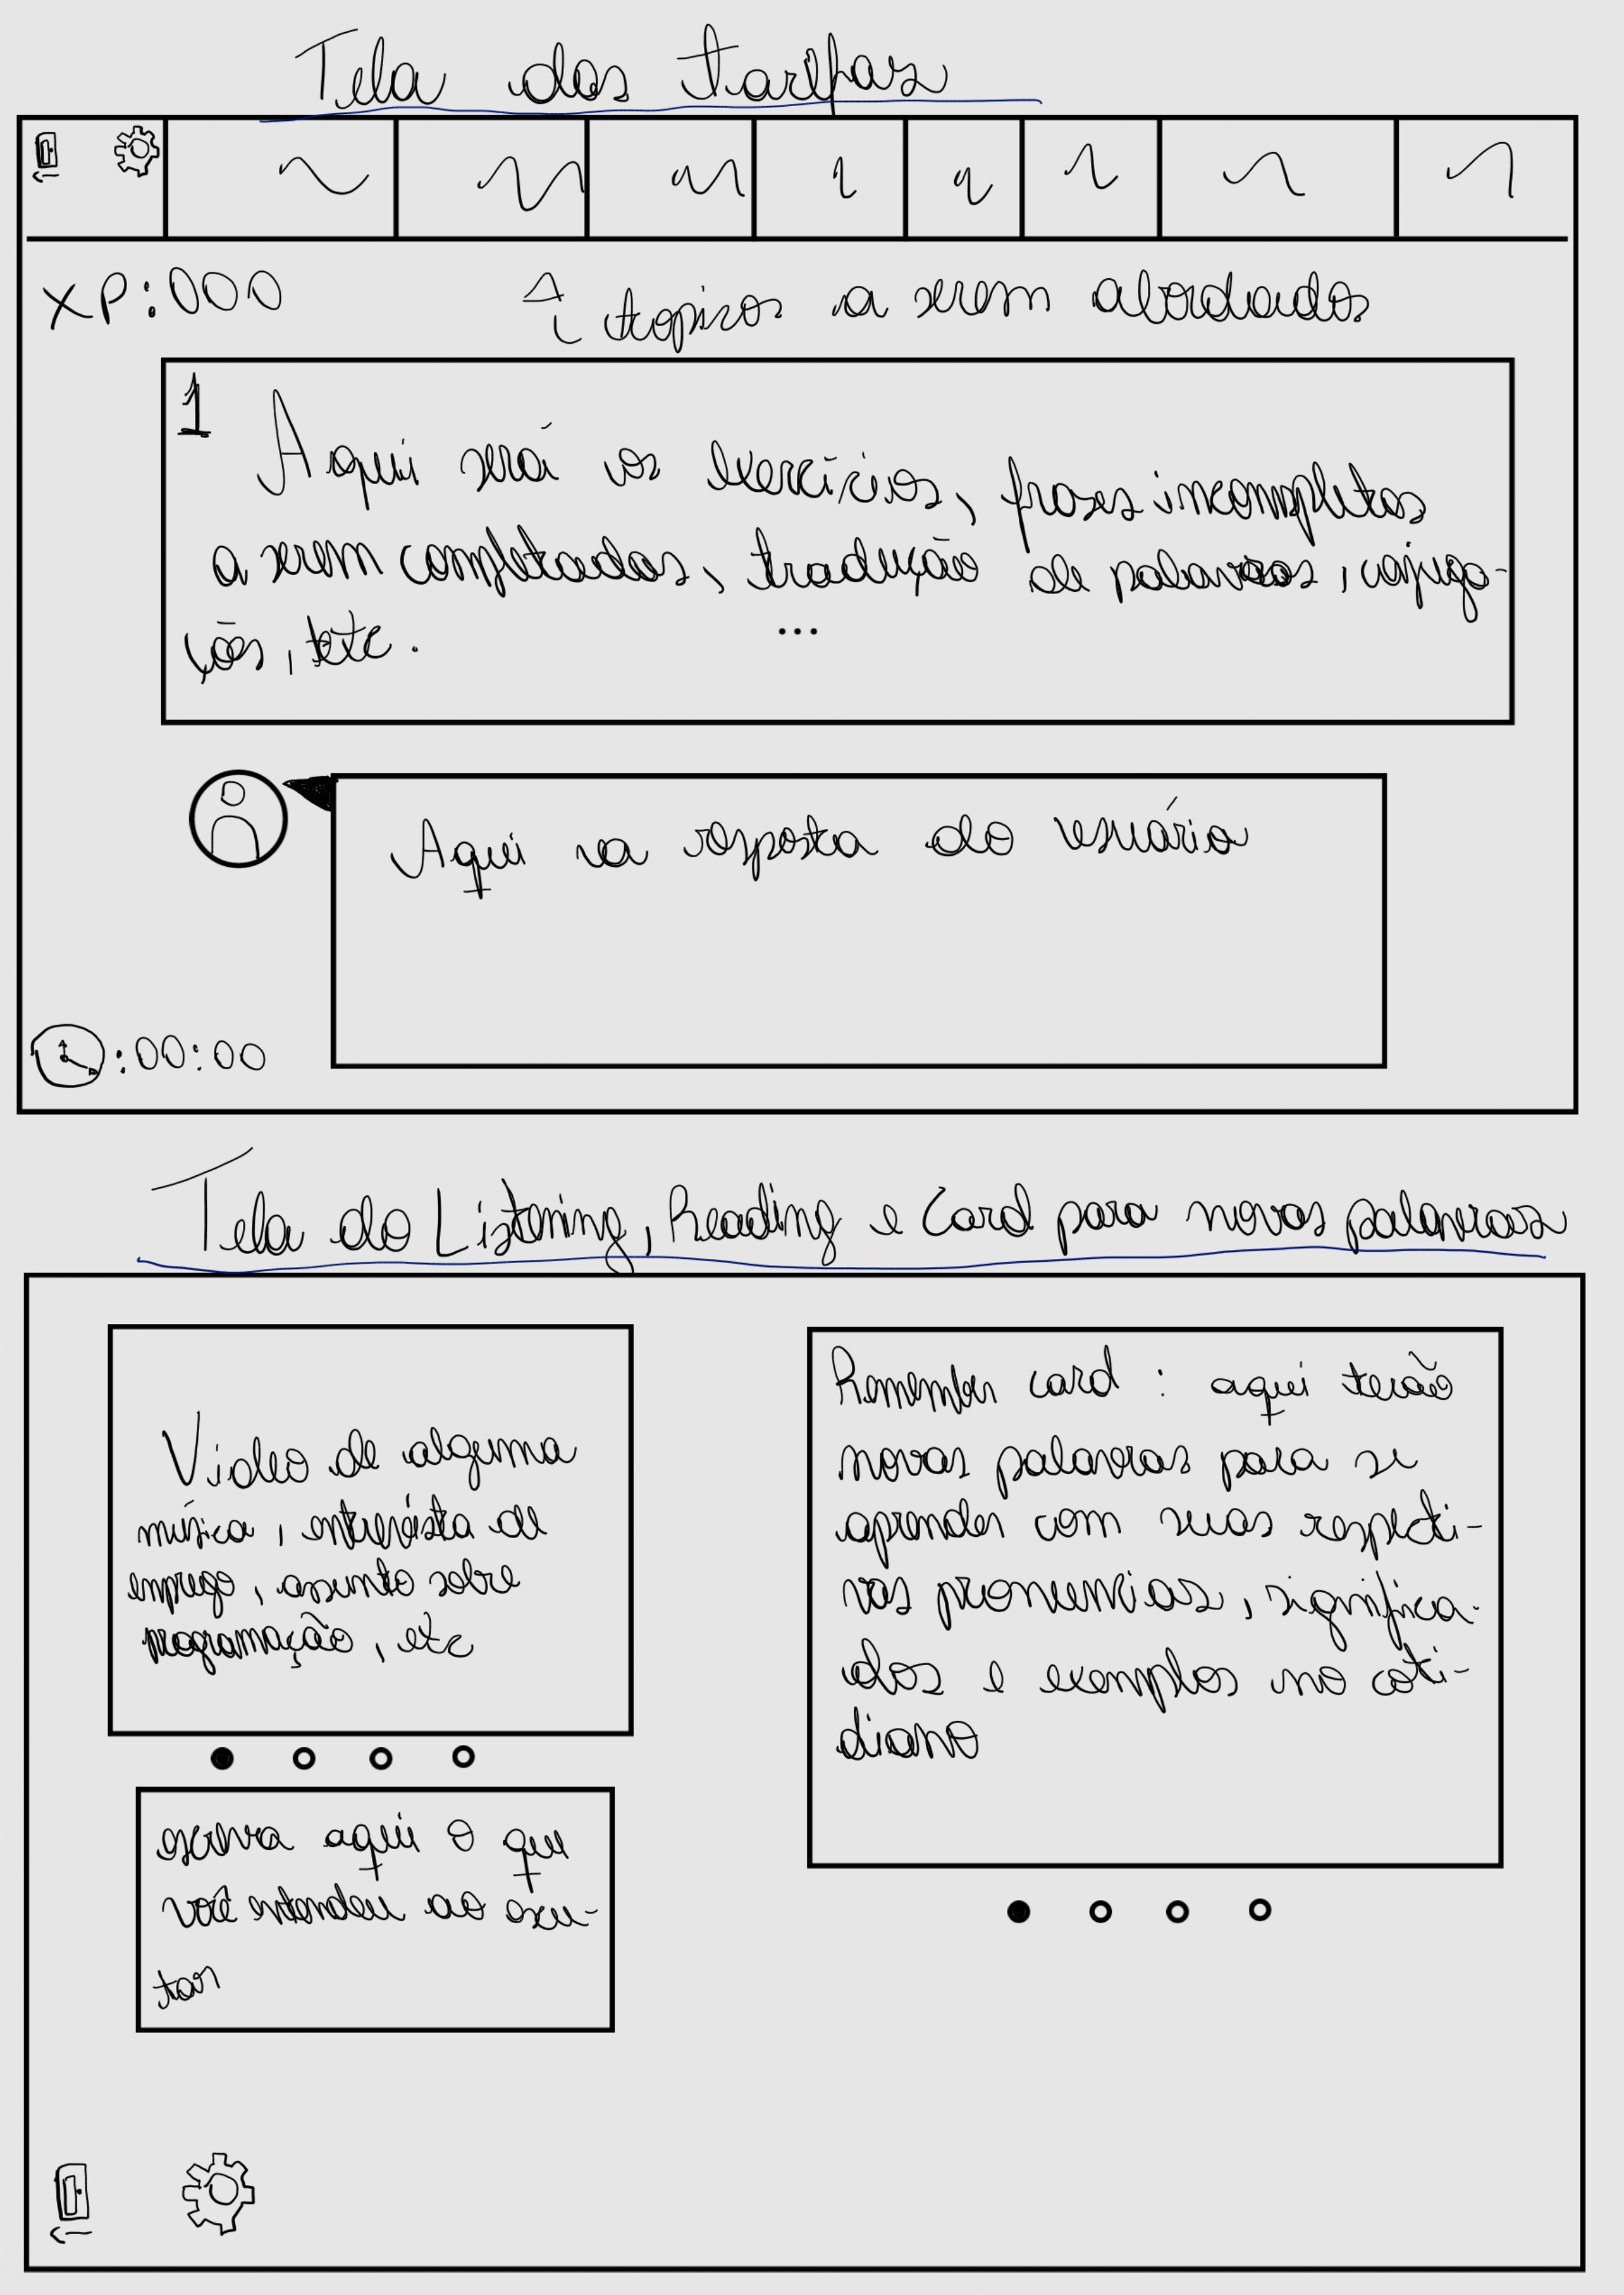 Tela das tarefas
XP:000
topicos a serem abordados
1
Aqui será os exercícios, frases incompletas
a serem completadas, tradução de palavras, conjuga-
ções, etc.
...
Aqui va resposta do usuário
:00:00
Tela do Listening, Reading e Card para novas palavras
Video de alguma
música, entrevista de
emprego, assunto sobre
programação, etc
Remember card : aqui terão
novas palavras para se
aprender com suas respecti-
vas pronuncias, significa-
dos e exemplos no coti-
diano
escreva aqui o que
você entendeu ao escu-
tar